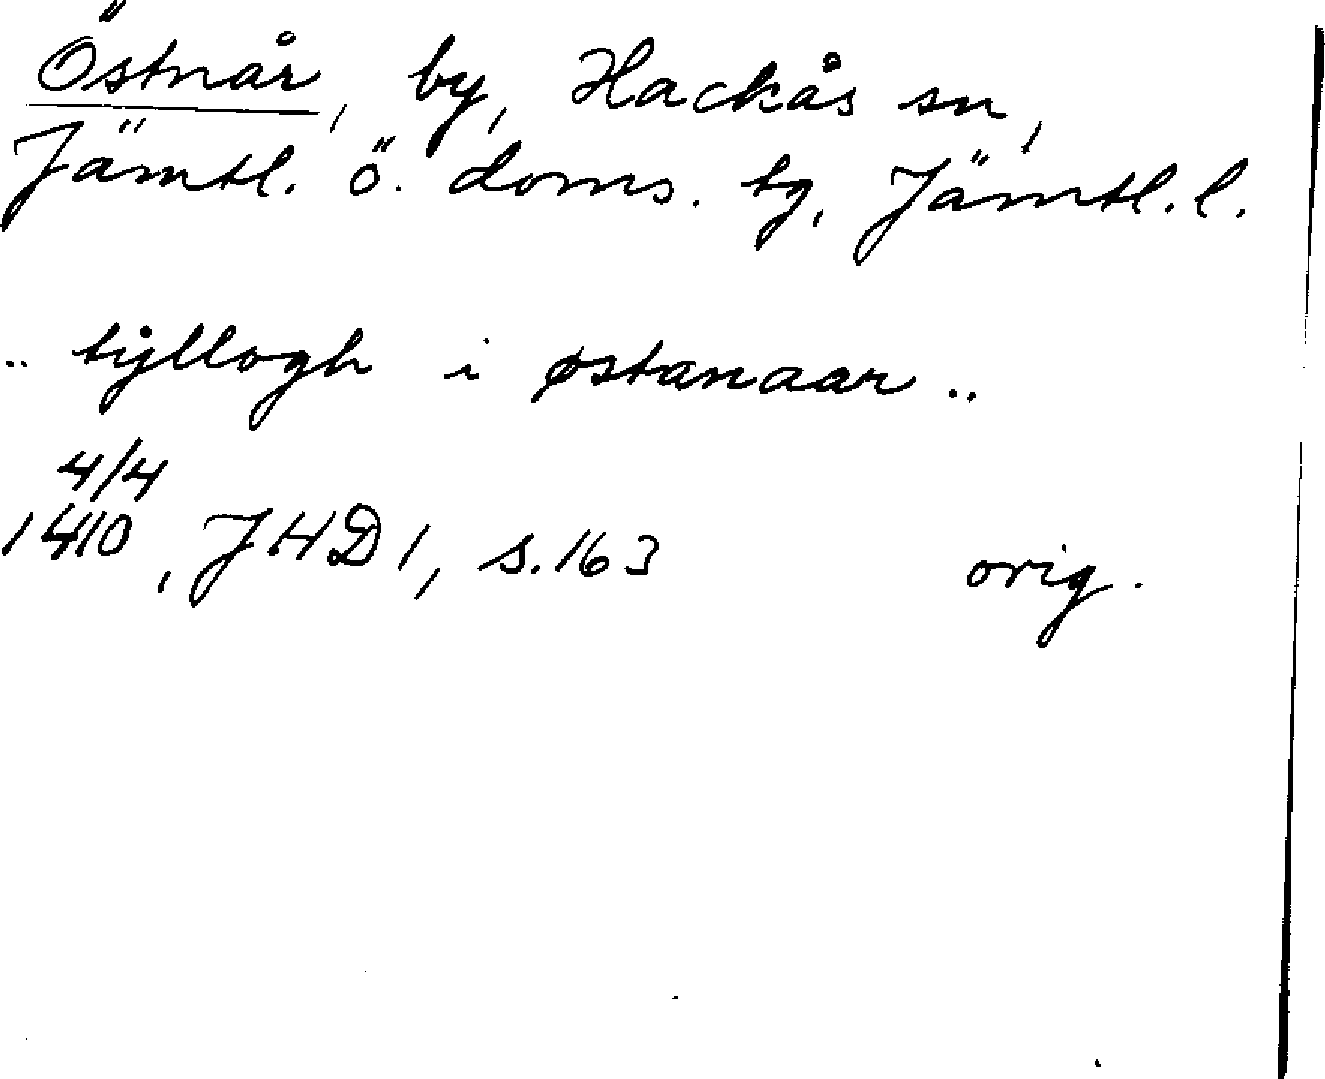 Östnår, by, Hackås sn,
Jämtl. ö. doms. tg, Jämtl. l.
.. tyllogh i østanaar ..
4/4
1410, JHD 1, s. 163 orig.